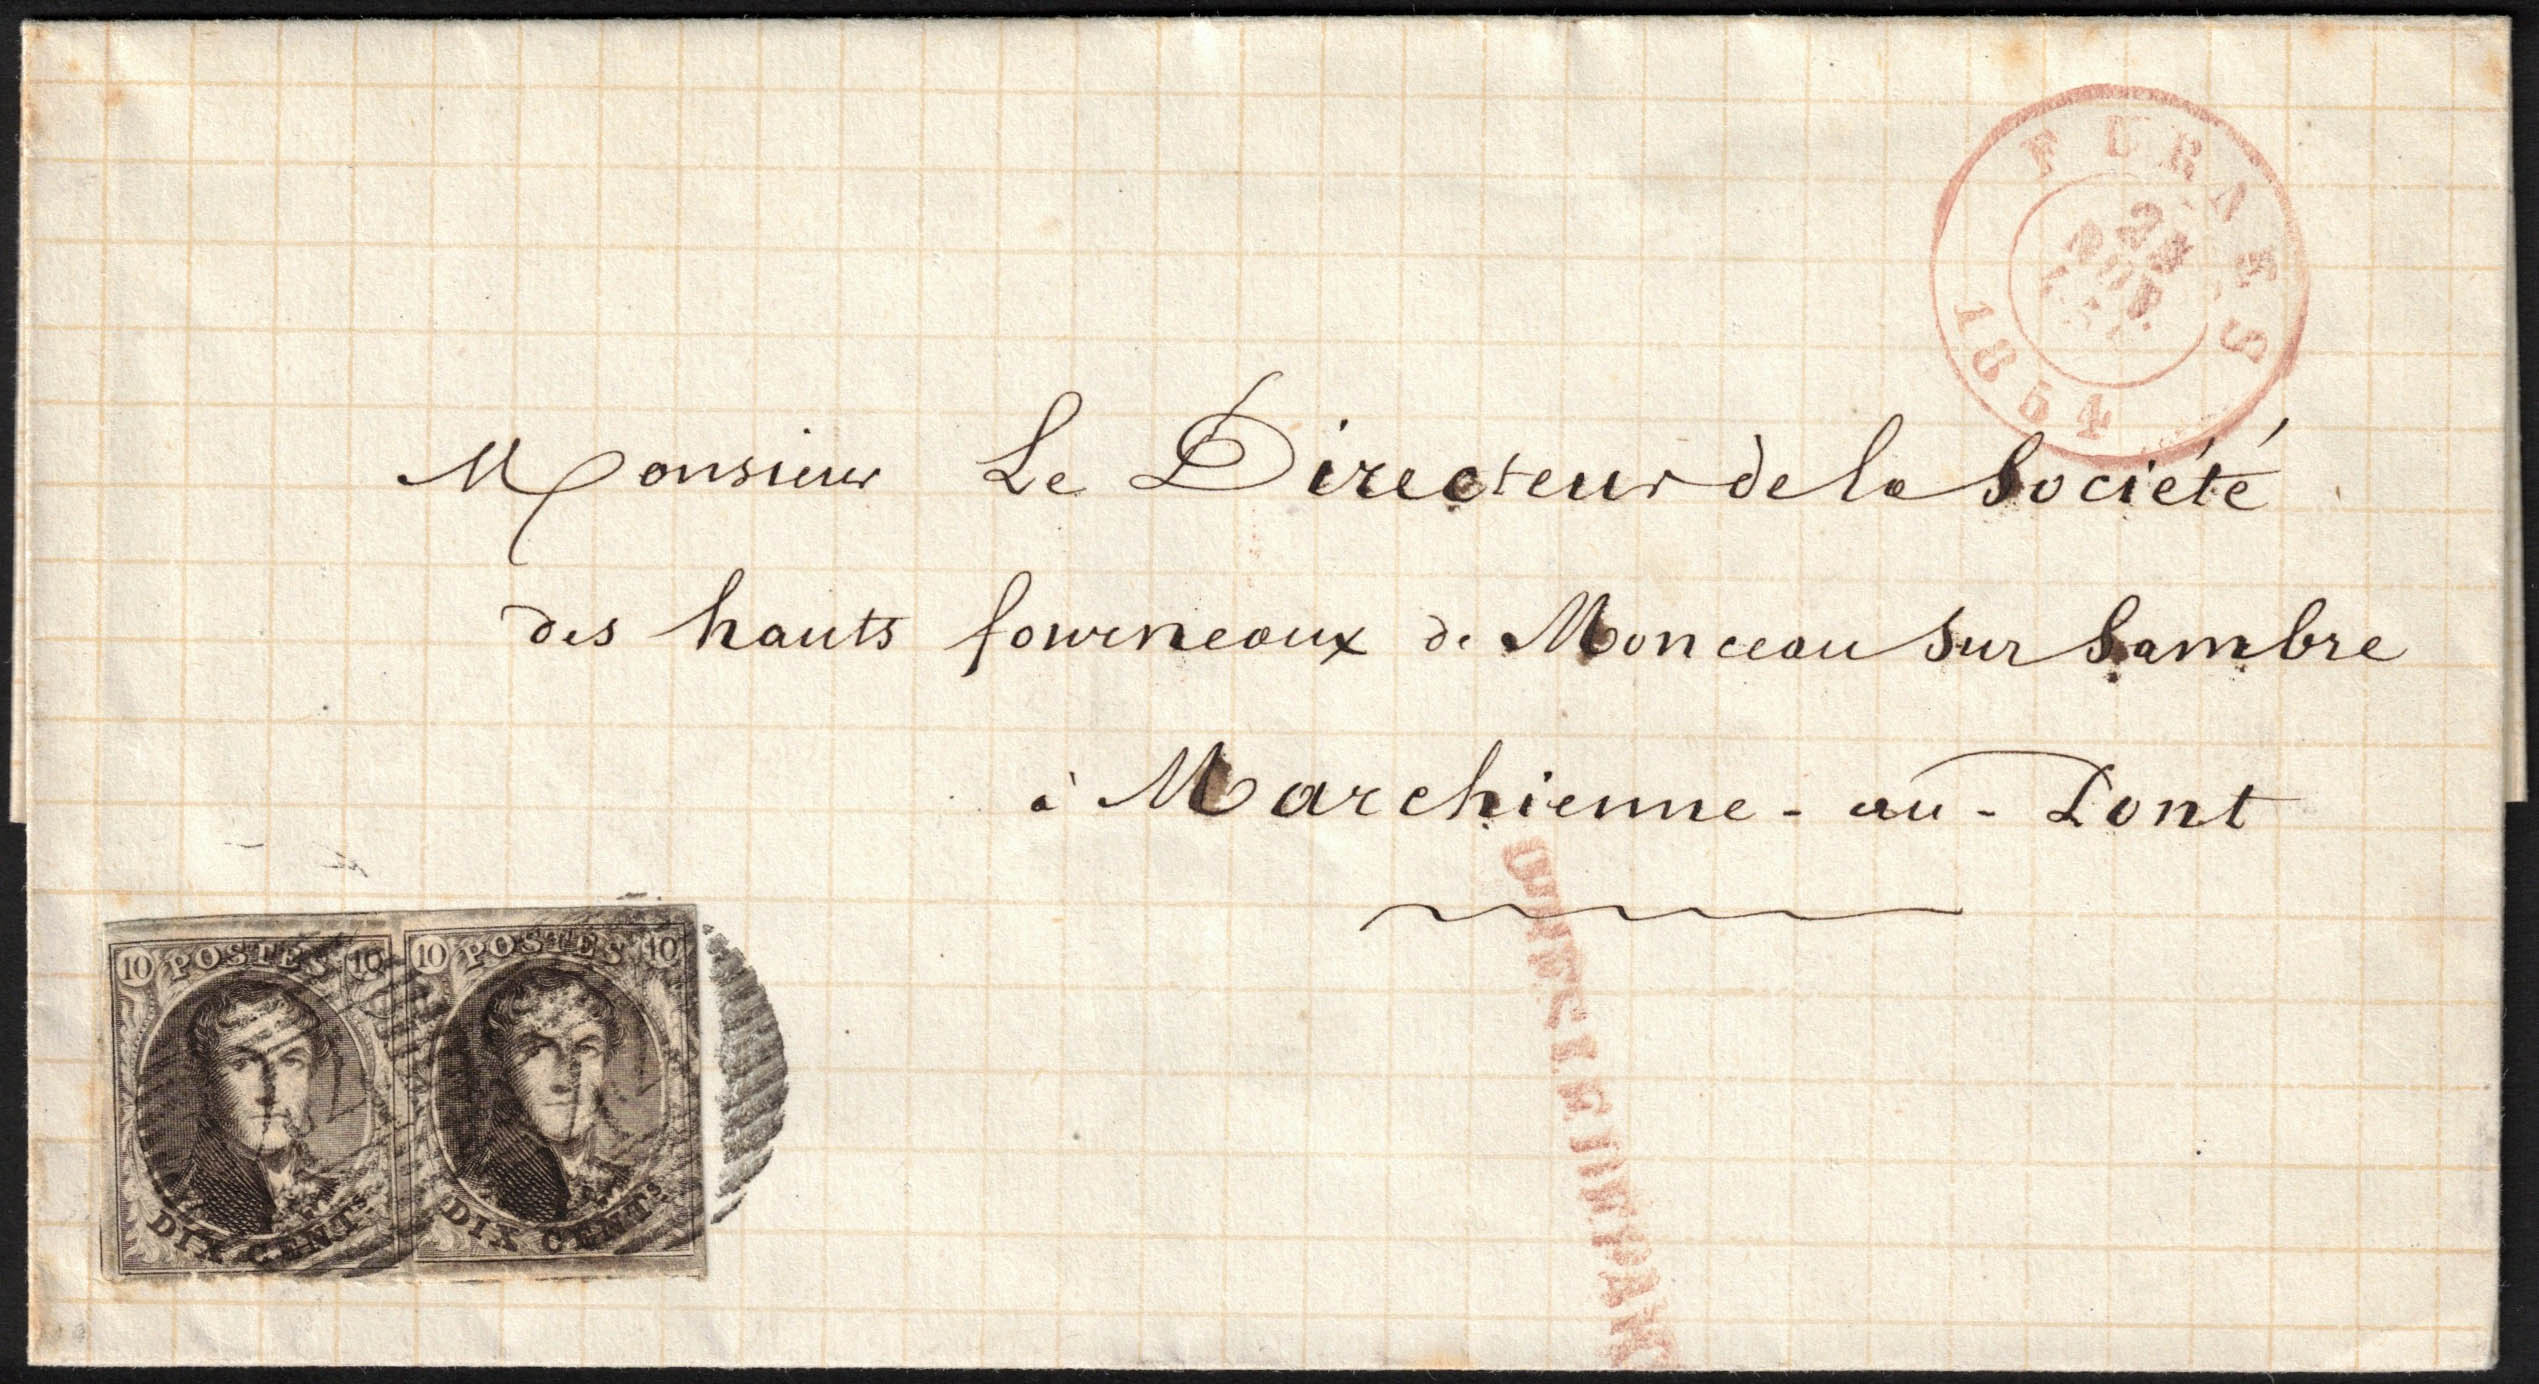 FURNES
1854
Monsieur Le Directeur de la Société
des hauts fourneaux de Monceau sur Sambre
à Marchienne-au-Pont
10 POSTES 10
DIX CENTs
10 POSTES 10
DIX CENTs
APRÈS LE DÉPART